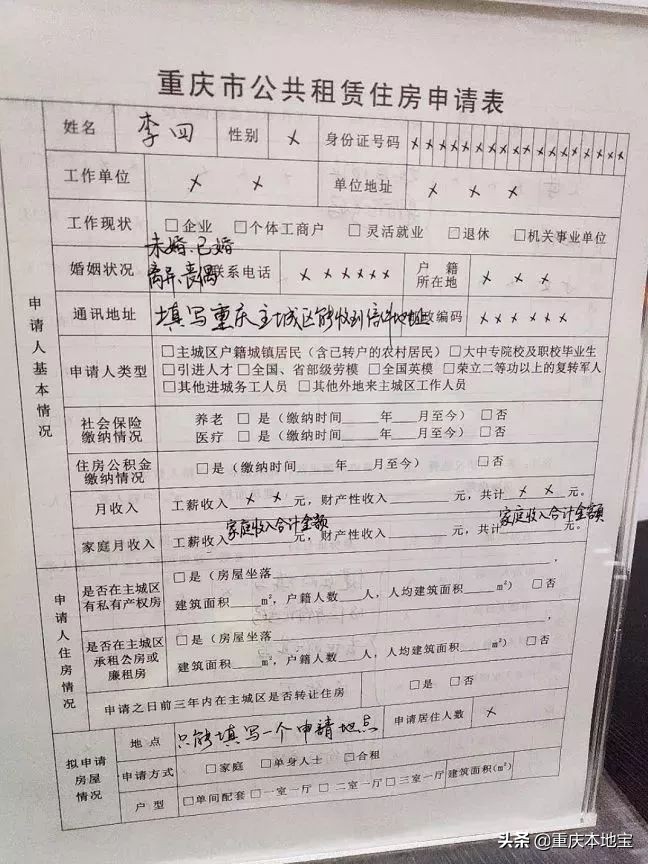 重庆市公共租赁住房申请表
申请人基本情况
姓名 李四 性别 × 身份证号码 ××××××××××××××××××
工作单位 × × 单位地址 × × ×
工作现状 □企业 □个体工商户 □灵活就业 □退休 □机关事业单位
婚姻状况 未婚、已婚 离异、丧偶 联系电话 ×××××× 户籍所在地 × × ×
通讯地址 填写重庆主城区能收到信件地址 邮政编码 ××××××
申请人类型 □主城区户籍城镇居民（含已转户的农村居民）□大中专院校及职校毕业生
□引进人才 □全国、省部级劳模 □全国英模 □荣立二等功以上的复转军人
□其他进城务工人员 □其他外地来主城区工作人员
社会保险缴纳情况 养老 □是（缴纳时间____年____月至今）□否
医疗 □是（缴纳时间____年____月至今）□否
住房公积金缴纳情况 □是（缴纳时间____年____月至今） □否
月收入 工薪收入 × × 元，财产性收入____元，共计 × × 元。
家庭月收入 工薪收入 家庭收入合计金额 元，财产性收入____元，共计 家庭收入合计金额 元。
申请人住房情况
是否在主城区有私有产权房 □是（房屋坐落____，
建筑面积____m²，户籍人数____人，人均建筑面积____m²）□否
是否在主城区承租公房或廉租房 □是（房屋坐落____，
建筑面积____m²，户籍人数____人，人均建筑面积____m²）□否
申请之日前三年内在主城区是否转让住房 □是 □否
拟申请房屋情况
地点 只能填写一个申请地点 申请居住人数 ×
申请方式 □家庭 □单身人士 □合租
户型 □单间配套 □一室一厅 □二室一厅 □三室一厅 建筑面积(m²)
头条 @重庆本地宝